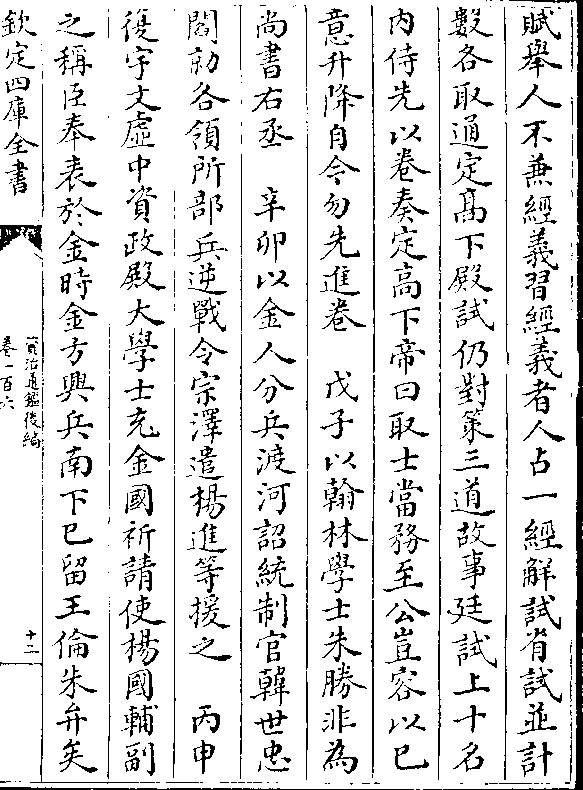 賦舉人不兼經義習經義者人占一經解試省試並計
數各取通定髙下殿試仍對策三道故事廷試上十名
内侍先以卷奏定高下帝曰取士當務至公豈容以已
意升降自今勿先進卷　戊子以翰林學士朱勝非為
尚書右丞　辛卯以金人分兵渡河詔統制官韓世忠
閻勍各領所部兵逆戰令宗澤遣楊進等援之　丙申
復宇文虛中資政殿大學士充金國祈請使楊國輔副
之稱臣奉表於金時金方興兵南下已留王倫朱弁矣
欽定四庫全書
資治通鑑後編
卷一百六
十二